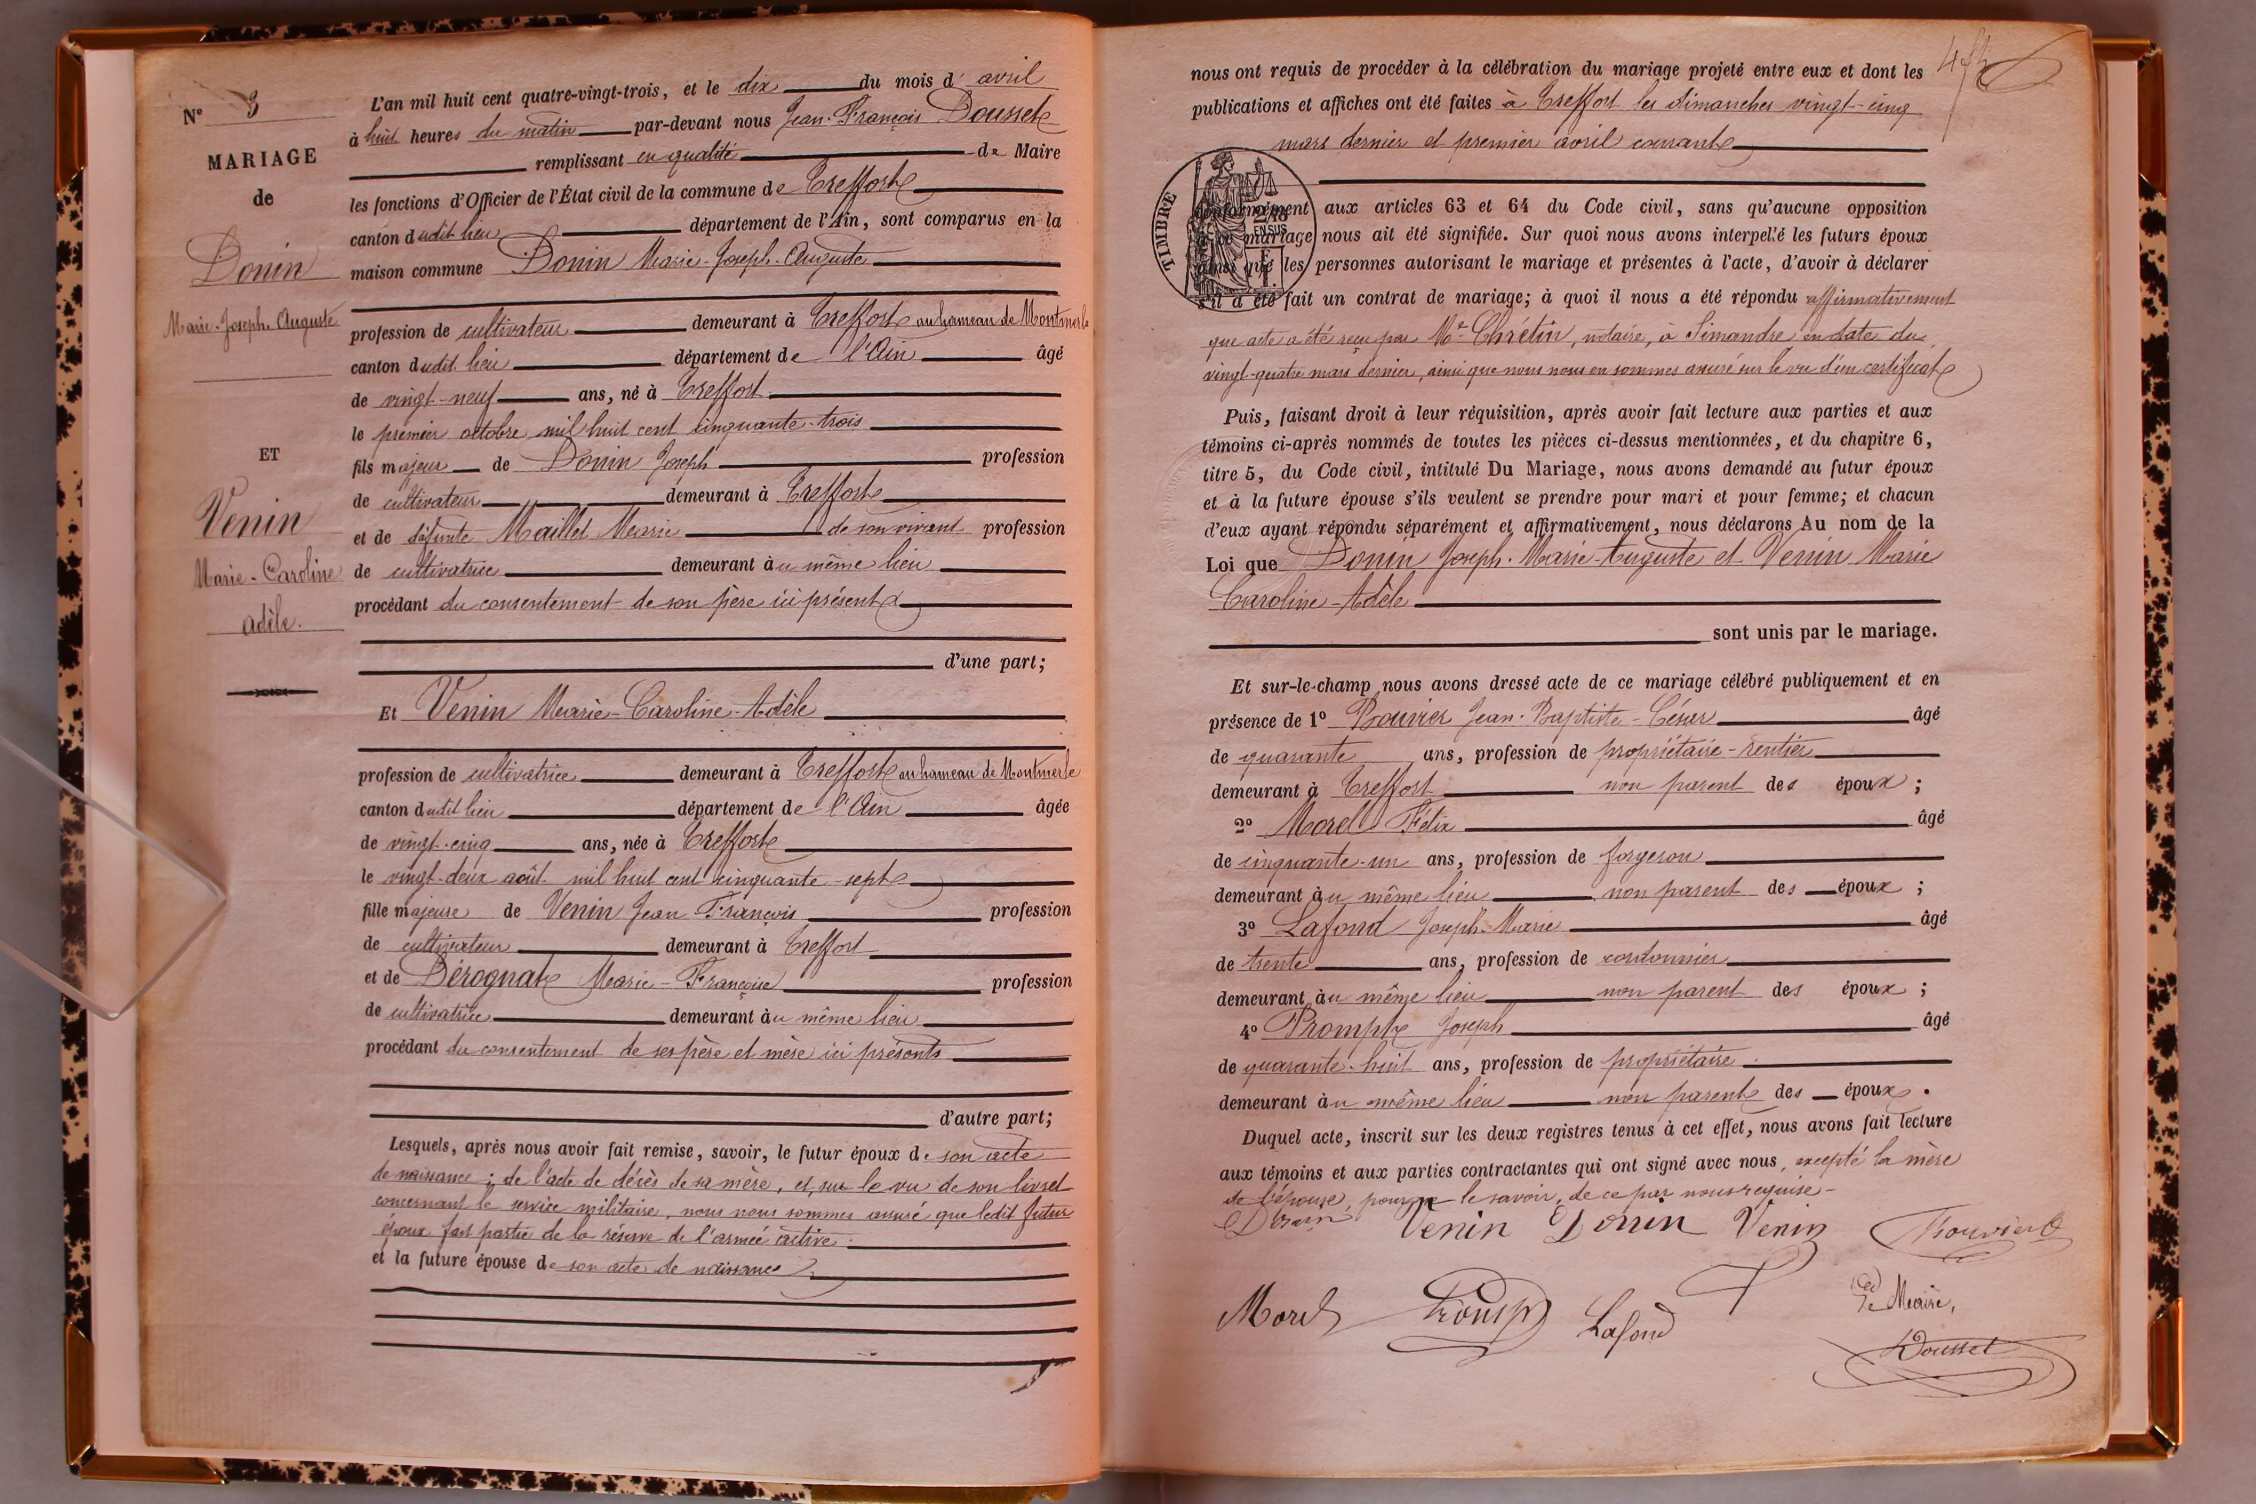 N° 3
MARIAGE
de
Donin
Marie-Joseph-Auguste
ET
Venin
Marie-Caroline
Adèle.
L'an mil huit cent quatre-vingt-trois, et le dix du mois d' avril
à huit heures du matin par-devant nous Jean-François Dousset
remplissant en qualité de Maire
les fonctions d'Officier de l'État civil de la commune de Treffort
canton dudit lieu département de l'Ain, sont comparus en la
maison commune Donin Marie-Joseph-Auguste
profession de cultivateur demeurant à Treffort au hameau de Montmerle
canton dudit lieu département de l'Ain âgé
de vingt-neuf ans, né à Treffort
le premier octobre mil huit cent cinquante-trois
fils majeur de Donin Joseph profession
de cultivateur demeurant à Treffort
et de défunte Maillet Marie de son vivant profession
de cultivatrice demeurant au même lieu
procédant du consentement de son père ici présent
d'une part;
Et Venin Marie-Caroline-Adèle
profession de cultivatrice demeurant à Treffort au hameau de Montmerle
canton dudit lieu département de l'Ain âgée
de vingt-cinq ans, née à Treffort
le vingt-deux août mil huit cent cinquante-sept
fille majeure de Venin Jean François profession
de cultivateur demeurant à Treffort
et de Dérognat Marie-Françoise profession
de cultivatrice demeurant au même lieu
procédant du consentement de ses père et mère ici présents
d'autre part;
Lesquels, après nous avoir fait remise, savoir, le futur époux de son acte
de naissance; de l'acte de décès de sa mère, et, sur le vu de son livret
concernant le service militaire, nous nous sommes assuré que ledit futur
époux fait partie de la réserve de l'armée active.
et la future épouse de son acte de naissance
nous ont requis de procéder à la célébration du mariage projeté entre eux et dont les
publications et affiches ont été faites à Treffort les dimanches vingt-cinq
mars dernier et premier avril courant
TIMBRE
conformément aux articles 63 et 64 du Code civil, sans qu'aucune opposition
à ce mariage nous ait été signifiée. Sur quoi nous avons interpellé les futurs époux
ainsi que les personnes autorisant le mariage et présentes à l'acte, d'avoir à déclarer
s'il a été fait un contrat de mariage; à quoi il nous a été répondu affirmativement
que acte a été reçu par Me Chrétin, notaire, à Simandre en date du
vingt-quatre mars dernier, ainsi que nous nous en sommes assuré sur le vu d'un certificat
Puis, faisant droit à leur réquisition, après avoir fait lecture aux parties et aux
témoins ci-après nommés de toutes les pièces ci-dessus mentionnées, et du chapitre 6,
titre 5, du Code civil, intitulé Du Mariage, nous avons demandé au futur époux
et à la future épouse s'ils veulent se prendre pour mari et pour femme; et chacun
d'eux ayant répondu séparément et affirmativement, nous déclarons Au nom de la
Loi que Donin Joseph-Marie-Auguste et Venin Marie
Caroline-Adèle
sont unis par le mariage.
Et sur-le-champ nous avons dressé acte de ce mariage célébré publiquement et en
présence de 1° Bouvier Jean-Baptiste-César âgé
de quarante ans, profession de propriétaire-rentier
demeurant à Treffort non parent des époux;
2° Morel Félix âgé
de cinquante-un ans, profession de forgeron
demeurant au même lieu non parent des époux;
3° Lafond Joseph-Marie âgé
de trente ans, profession de cordonnier
demeurant au même lieu non parent des époux;
4° Prompt Joseph âgé
de quarante-huit ans, profession de propriétaire.
demeurant au même lieu non parent des époux.
Duquel acte, inscrit sur les deux registres tenus à cet effet, nous avons fait lecture
aux témoins et aux parties contractantes qui ont signé avec nous, excepté la mère
de l'épouse, pour ne le savoir, de ce par nous requise-
Venin Donin Venin Bouvier
Morel Prompt Lafond
Le Maire,
Dousset